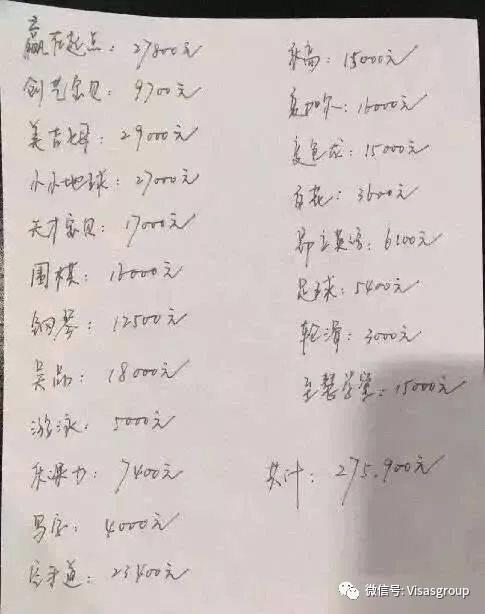 赢在起点：27800元
创艺宝贝：9700元
美吉姆：29000元
小小地球：27000元
天才宝贝：17000元
围棋：16000元
钢琴：12500元
吴品：18000元
游泳：5000元
7400元
4000元
23400元
乐高：15000元
16000元
变色龙：15000元
3600元
昂立英语：6100元
足球：5400元
轮滑：3000元
至慧学堂：15000元
共计：275.900元
微信号: Visasgroup